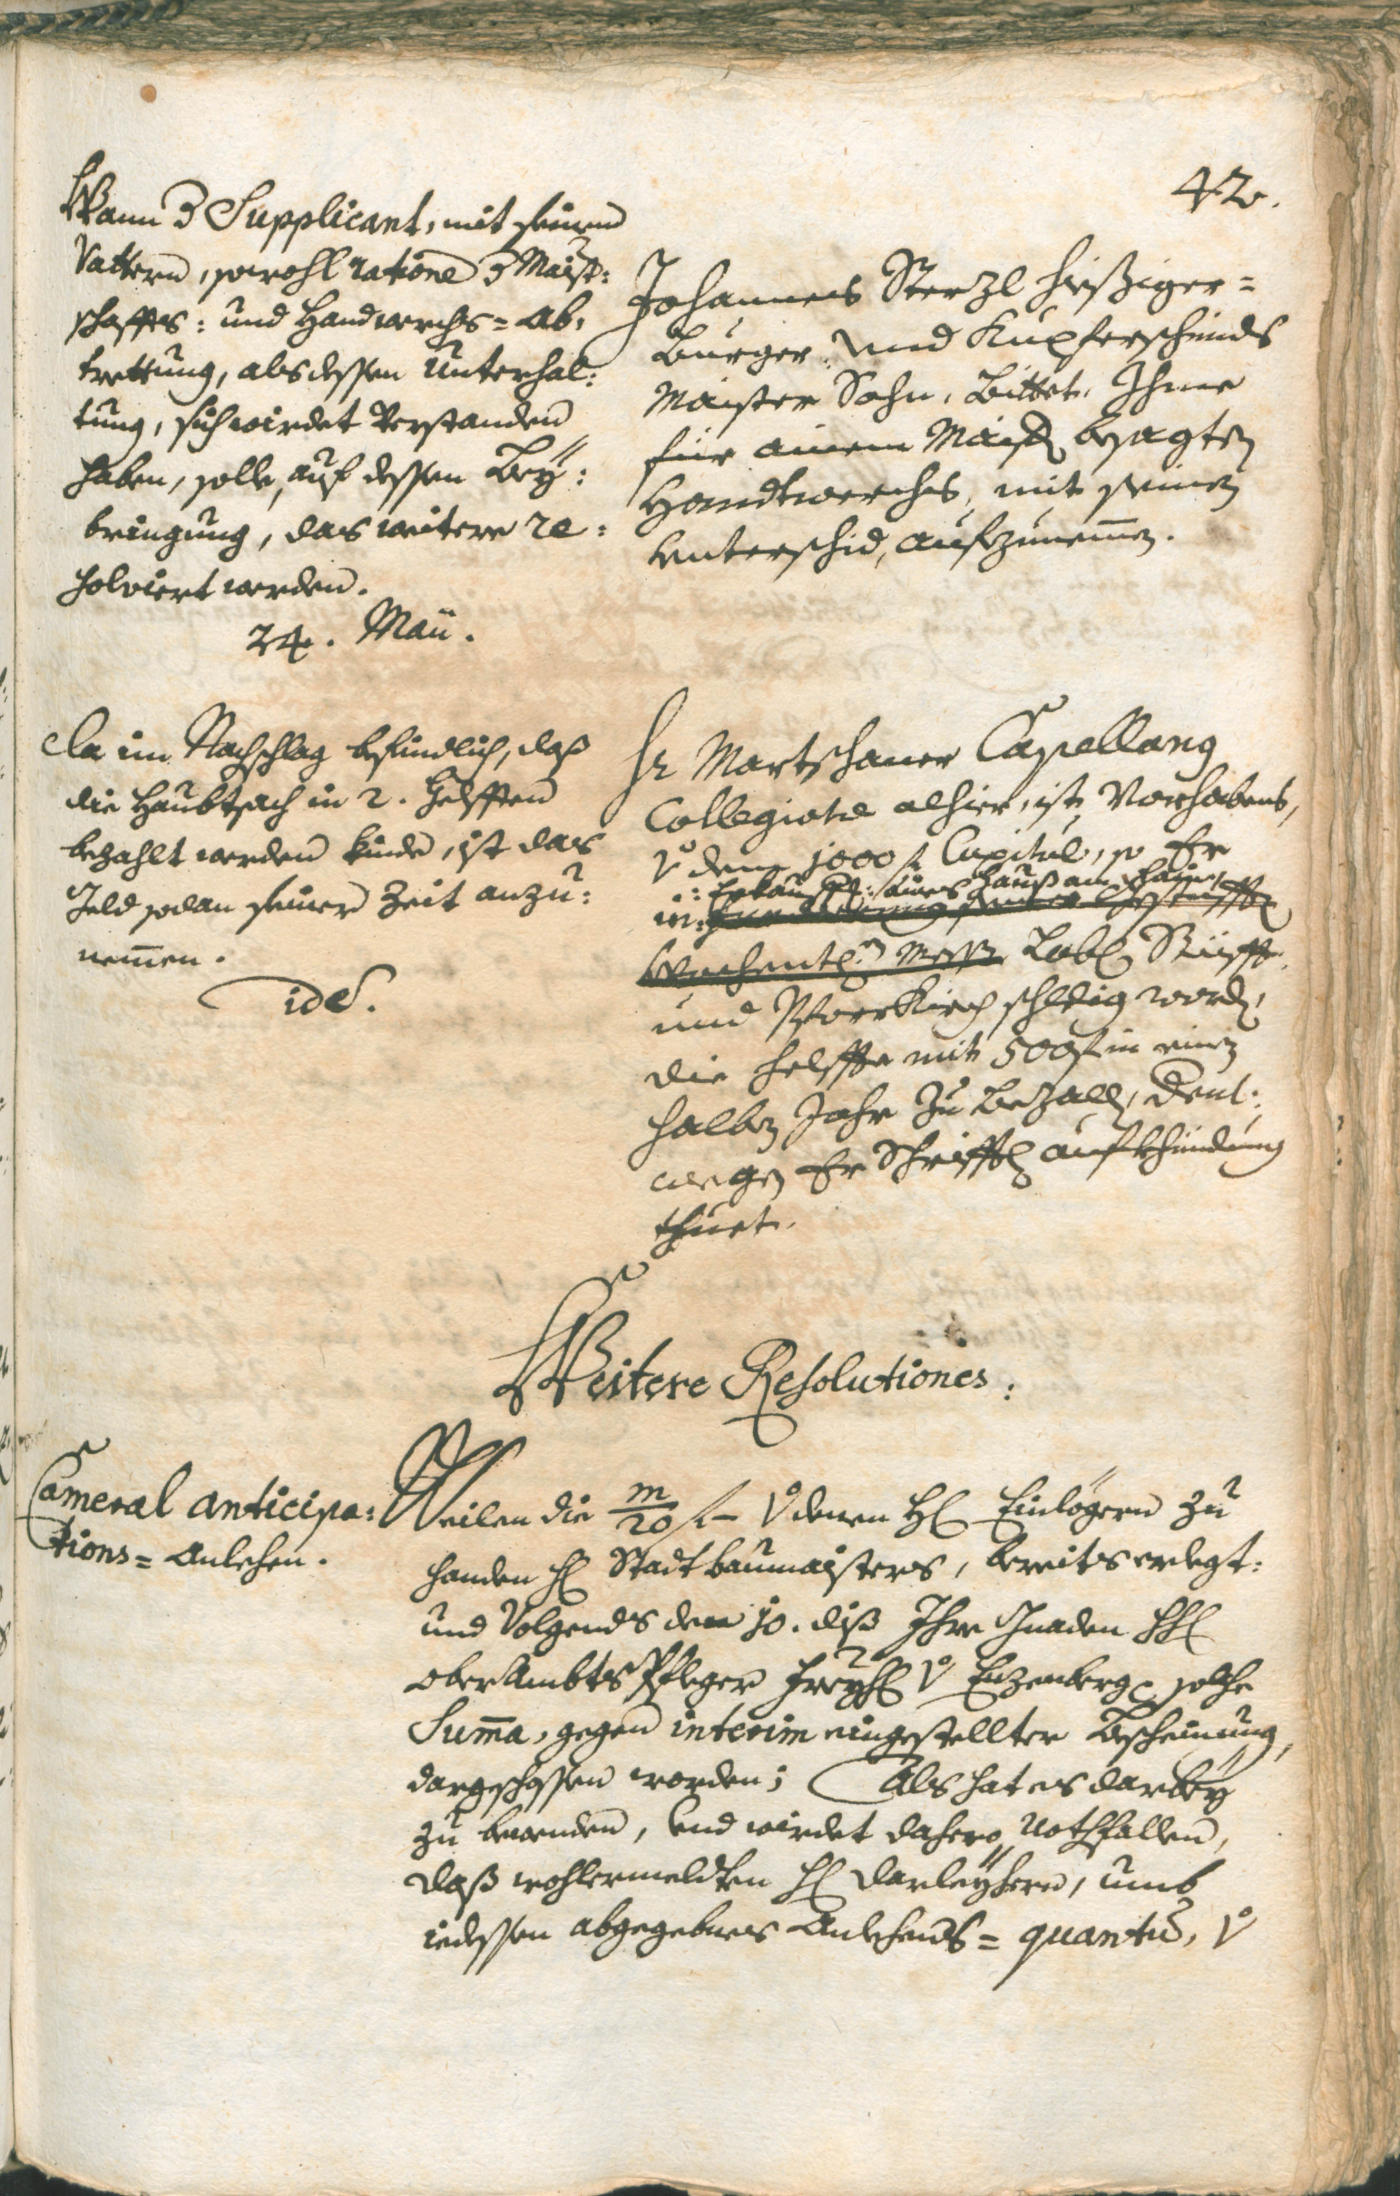 42.
Wann d Supplicant, mit seinem
Vattern, sowohl ratione d Maist:
schaffts: und Handwerchs= Ab,
trettung, als dessen Unterhal:
tung, sich wirdet Verstanden
haben, solle, auf dessen Beÿ:
bringung, das weitere re:
solviert werden.
24. Maii.
Johannes Sterzl hießiger=
Burger: und Kupferschmids
Maister Sohn, Bittet, Ihme
für ainem Maist besagten
Handtwerchs, mit seinen
Unterschid, aufzunemen.
Da im Nachschlag befindlich, daß
die Haubtsach in 2. Helfften
bezahlt werden künde, ist das
Geld sodan seiner Zeit anzu:
nemen.
id.
Hr Martschaner Capellang
Collegiatæ alhier, ist Vorhabens,
Vo dem 1000 f Capital, so Er
: Erkauffung aines Hauß am
Wochentl: Mess Lobl Stüfft
und Pfarrkirch schldig word,
die helffte mit 500 f in einen
halben Jahr zu Bezalln, dent:
wegen Er Schrifftl aufkhündung
thuet.
Weitere Resolutiones:
Cameral anticipa:
tions= Anlehen.
Weilen die m/20 f – Vo denen H Einlögern zu
handen H Stadt baumaisters, bereits erlegt:
und Volgends den 10. diß Ihro Gnaden HH
OberAmbts Pfleger Freyh Vo Enzenberg solche
Suma, gegen interim eingestellter Bescheinung,
dargeschossen worden; Als hat es darbeÿ
zu bewenden, Und wirdet dahero Nothfallen,
daß wohlermeldten H Darleÿhern, umb
iedessen abgegebnes Anlehens= quantu, Vo